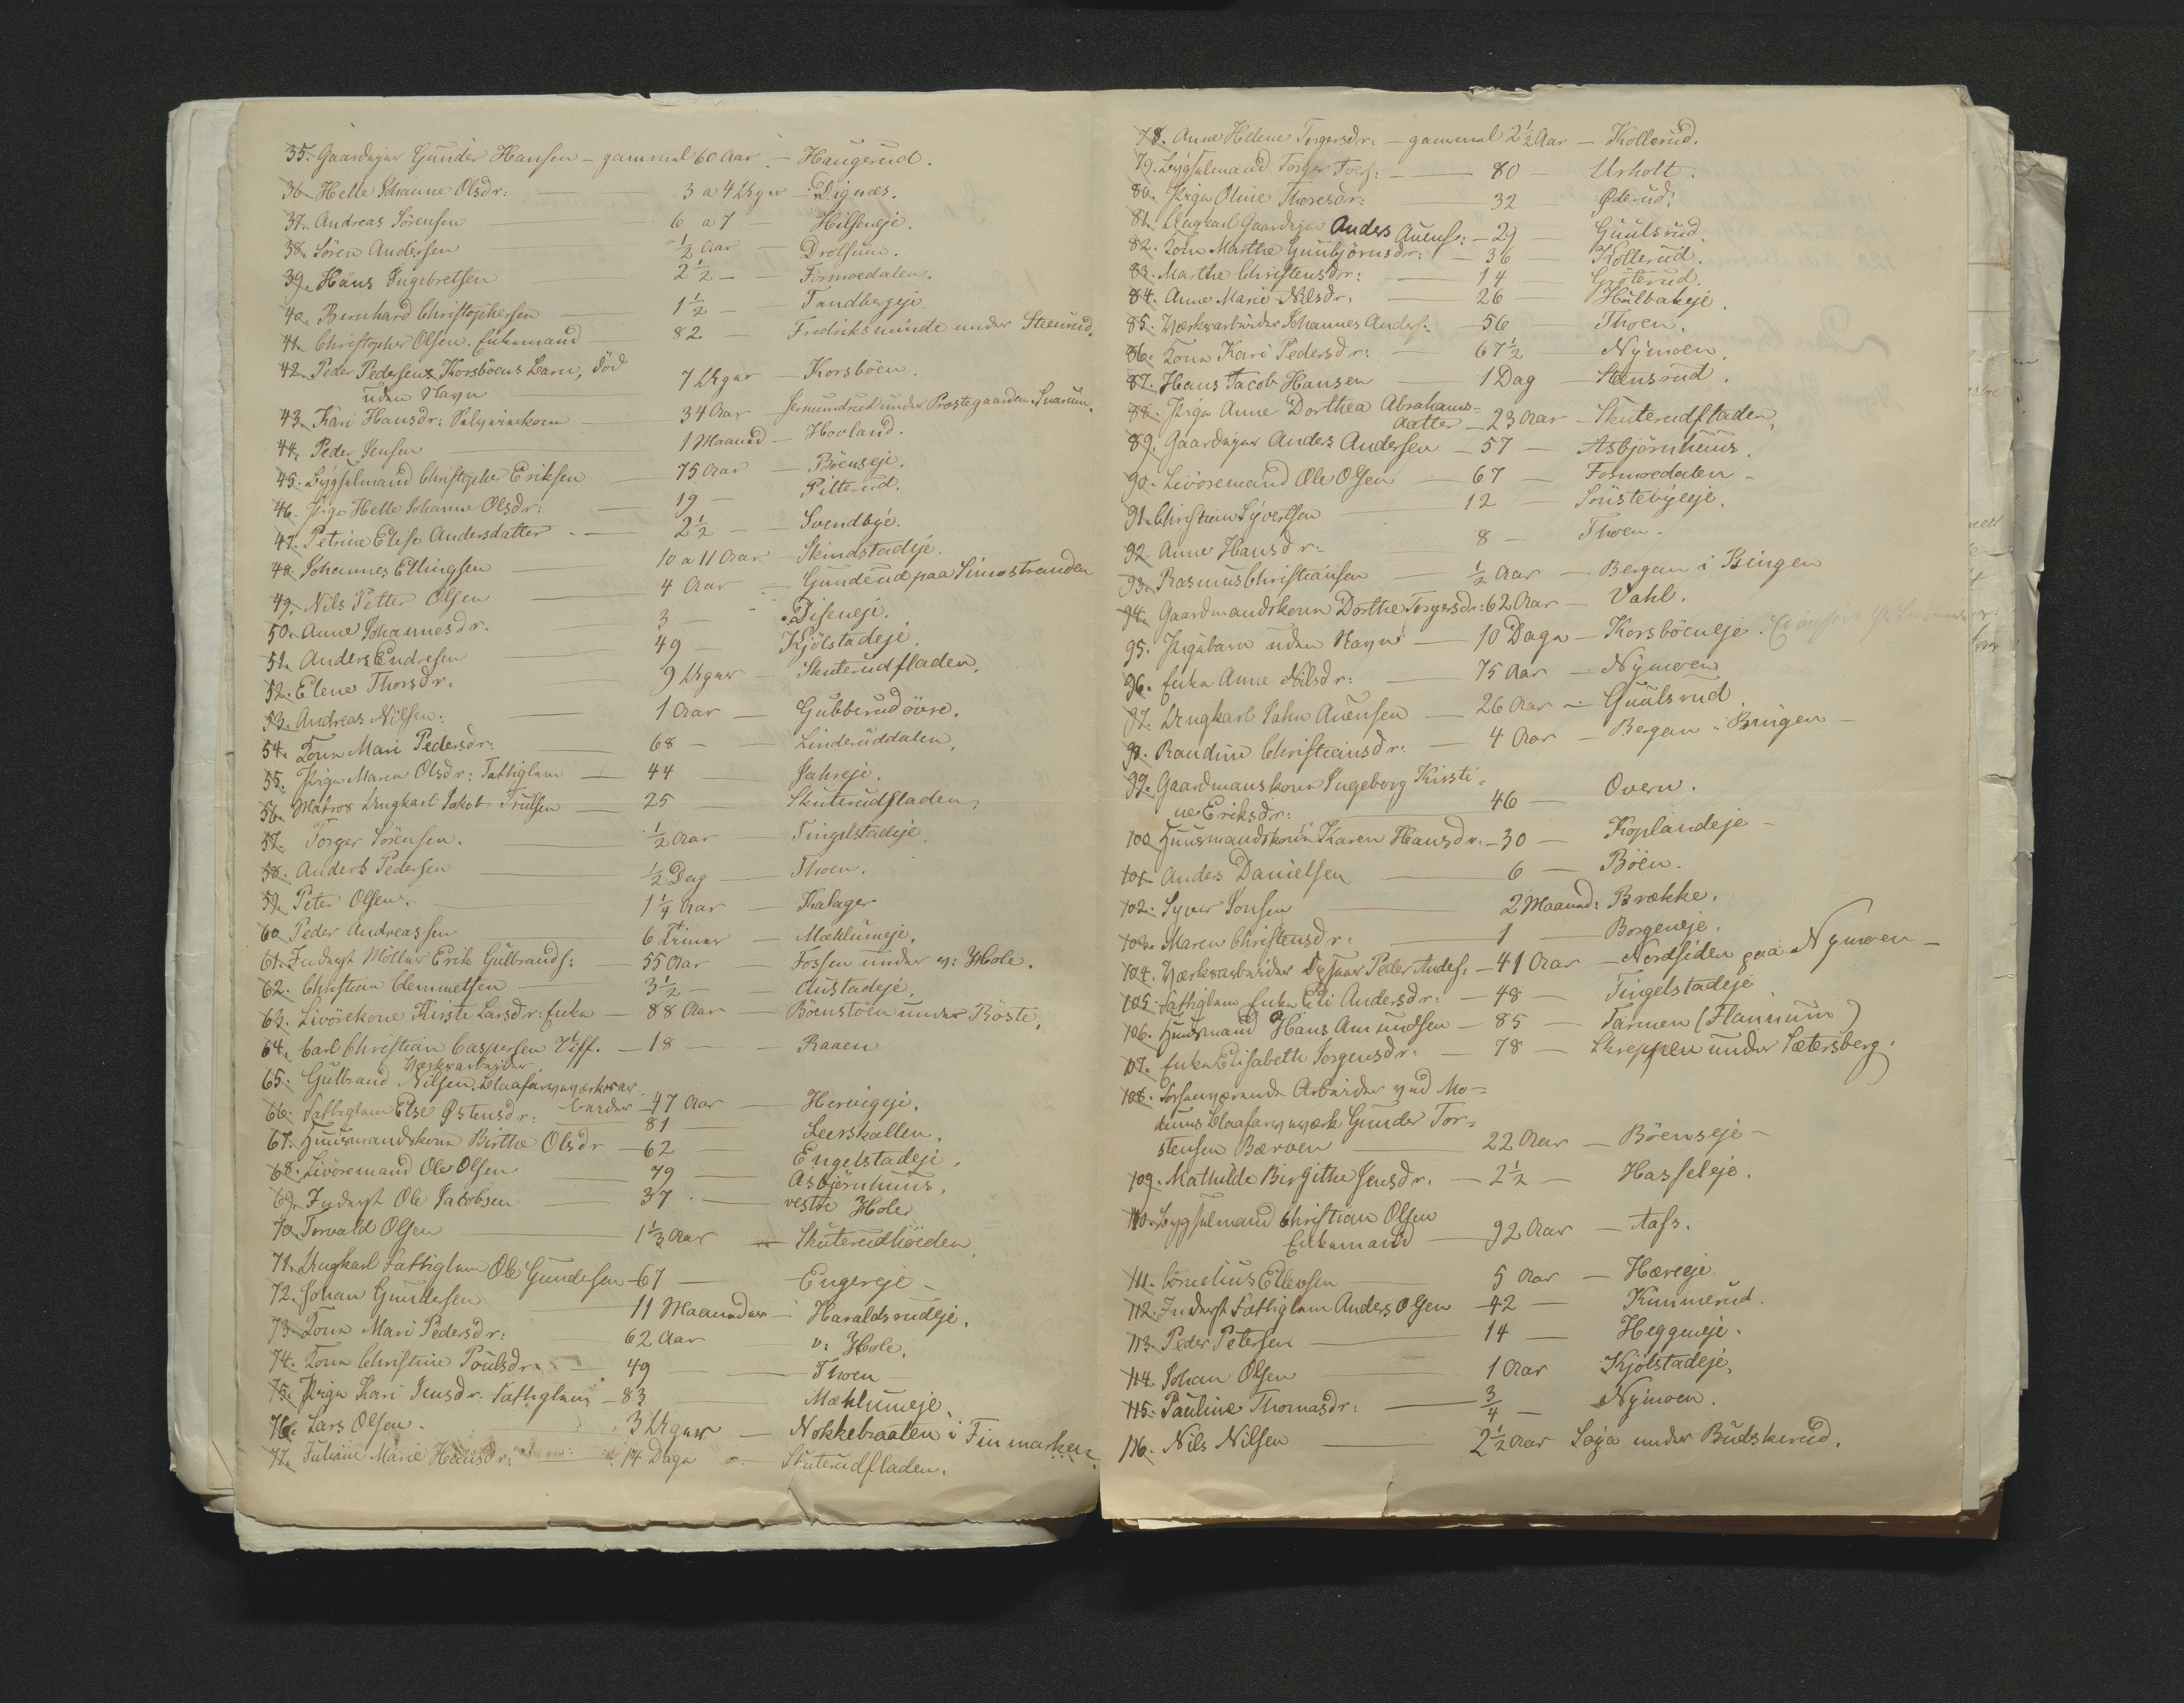 35. Gaardejer Gunder Hansen – gammel 60 Aar – Haugerud.
36. Helle Johanne Olsdr: — 3 a 4 Uger – Digenæs.
37. Andreas Sørensen — 6 a 7 — Hilseneje.
38. Søren Andersen — ½ Aar — Drolsum.
39. Hans Ingebretsen — 2½ — Formoedalen.
40. Bernhard Christophersen — 1½ — Tandbergeje.
41. Christopher Olsen. Enkemand — 82 — Fredriksminde under Steenrud.
42. Peder Pedersens Korsbøens Barn, død
uden Navn — 7 Uger — Korsbøen.
43. Kari Hansdr: — 34 Aar — Jermundrud under Præstegaarden Snarum.
44. Peder Jensen — 1 Maaned – Hovland.
45. Bygselmand Christopher Eriksen — 75 Aar — Böenseje.
46. Pige Helle Johanne Olsdr: — 19 — Pilterud.
47. Petrine Elise Andersdatter — 2½ — Svendbye.
48. Johannes Ellingsen — 10 a 11 Aar – Skindstadeje.
49. Nils Petter Olsen — 4 Aar — Gunderud paa Simostranden
50. Anne Johannesdr. — 3 — Diseneje.
51. Anders Endresen — 49 — Kjölstadeje.
52. Elene Thorsdr. — 9 Uger — Skuterudfladen.
53. Andreas Nilsen: — 1 Aar — Gubberud övre.
54. Kone Mari Pedersdr: — 68 — Linderuddalen.
55. Pige Maren Olsdr: Fattiglem — 44 — Jahreje.
56. Matros Ungkarl Jakob Trulsen — 25 — Skuterudfladen.
57. Torger Sörensen. — ½ Aar — Tingelstadeje.
58. Anders Pedersen — ½ Dag — Thoen.
59. Peter Olsen. — 1¼ Aar — Kalager
60. Peder Andreassen — 6 Timer — Mæhlumeje.
61. Inderst Möller Erik Gulbrands: — 55 Aar — Fossen under v: Hole.
62. Christian Clemmetsen — 3½ — Austadeje.
63. Livörekone Kirsti Larsdr: Enke — 88 Aar — Böenstöen under Böste.
64. Carl Christian Caspersen Viff. — 18 — Raaen
Værksarbeider
65. Gulbrand Nilsen. Blaafarveværksar-
beider — 47 Aar — Hervigeje.
66. Fattiglem Else Østensdr: — 81 — Leerskallen.
67. Huusmandskone Birthe Olsdr — 62 — Engelstadeje.
68. Livöremand Ole Olsen — 79 — Asbjörnhuus.
69. Inderst Ole Jacobsen — 37 — vestre Hole.
70. Torvald Olsen — 1⅓ Aar — Skuterudhöiden.
71. Ungkarl Fattiglem Ole Gundersen – 67 — Engereje –
72. Johan Gundersen — 11 Maaneder – Haraldsrudeje.
73. Kone Mari Pedersdr: — 62 Aar — v: Hole.
74. Kone Christine Poulsdr. — 49 — Thoen
75. Pige Kari Jensdr. Fattiglem – 83 — Mæhlumeje.
76. Lars Olsen. — 3 Uger — Nokkebraaten i Finmarken.
77. Juliane Marie Hansdr. — 14 Dage — Skuterudfladen.
78. Anne Helene Torgersdr. – gammel 2½ Aar – Kollerud.
79. Bygselmand Torger Torf: — 80 — Urholt.
80. Pige Oline Thoresdr: — 32 — Øderud.
81. Ungkarl Gaardejer Anders Auens: – 29 — Guulsrud.
82. Kone Marthe Gunbjörnsdr: — 36 — Kollerud.
83. Marthe Christensdr: — 14 — Gröterud.
84. Anne Marie Nilsdr. — 26 — Hulbakeje.
85. Værksarbeider Johannes Anders: – 56 — Thoen.
86. Kone Kari Pedersdr: — 67½ — Nymoen.
87. Hans Jacob Hansen — 1 Dag — Stensrud.
88. Pige Anne Dorthea Abrahams-
datter – 23 Aar – Skuterudfladen.
89. Gaardejer Anders Andersen – 57 — Asbjörnhuus.
90. Livöremand Ole Olsen — 67 — Formoedalen –
91. Christian Syvertsen — 12 — Sönstebyeje.
92. Anne Hansdr: — 8 — Thoen.
93. Rasmus Christiansen — ½ Aar — Bergan i Bingen
94. Gaardmandskone Dorthe Torgersdr: 62 Aar – Vahl.
95. Pigebarn uden Navn — 10 Dage – Korsböeneje.
96. Enke Anne Nilsdr: — 75 Aar — Nymoen
97. Ungkarl Jahn Auensen — 26 Aar — Guulsrud
98. Randine Christiansdr: — 4 Aar — Bergan i Bingen –
99. Gaardmanskone Ingeborg Kirsti-
ne Eriksdr: — 46 — Overn.
100. Huusmandskone Karen Hansdr. – 30 — Koplandeje –
101. Anders Danielsen — 6 — Böen.
102. Syver Jonsen — 2 Maaned: Brække.
103. Maren Christensdr: — 1 — Borgeneje.
104. Værksarbeider Peder Anders: – 41 Aar – Nordsiden paa Nymoen –
105. Fattiglem Enke Eli Andersdr: – 48 — Tingelstadeje
106. Huusmand Hans Amundsen – 85 — Tarmen (Flannum)
107. Enke Elisabeth Jorgensdr. — 78 — Skreppen under Sætersberg.
108. Forhenværende Arbeider ved Mo-
dums Blaafarveværk Gunder Tor-
stensen Bærven — 22 Aar — Böenseje –
109. Mathilde Birgithe Jensdr. — 2½ — Hasseleje.
110. Bygselmand Christian Olsen
Enkemand — 92 Aar — Aass.
111. Cornelius Ellevsen — 5 Aar — Hæreeje.
112. Inderst Fattiglem Anders Olsen – 42 — Kimmerud.
113. Peder Petersen — 14 — Heggeneje.
114. Johan Olsen — 1 Aar Kjölstadeje.
115. Pauline Thomasdr: — ¾ — Nymoen.
116. Nils Nilsen — 2½ Aar Løya under Budskerud.